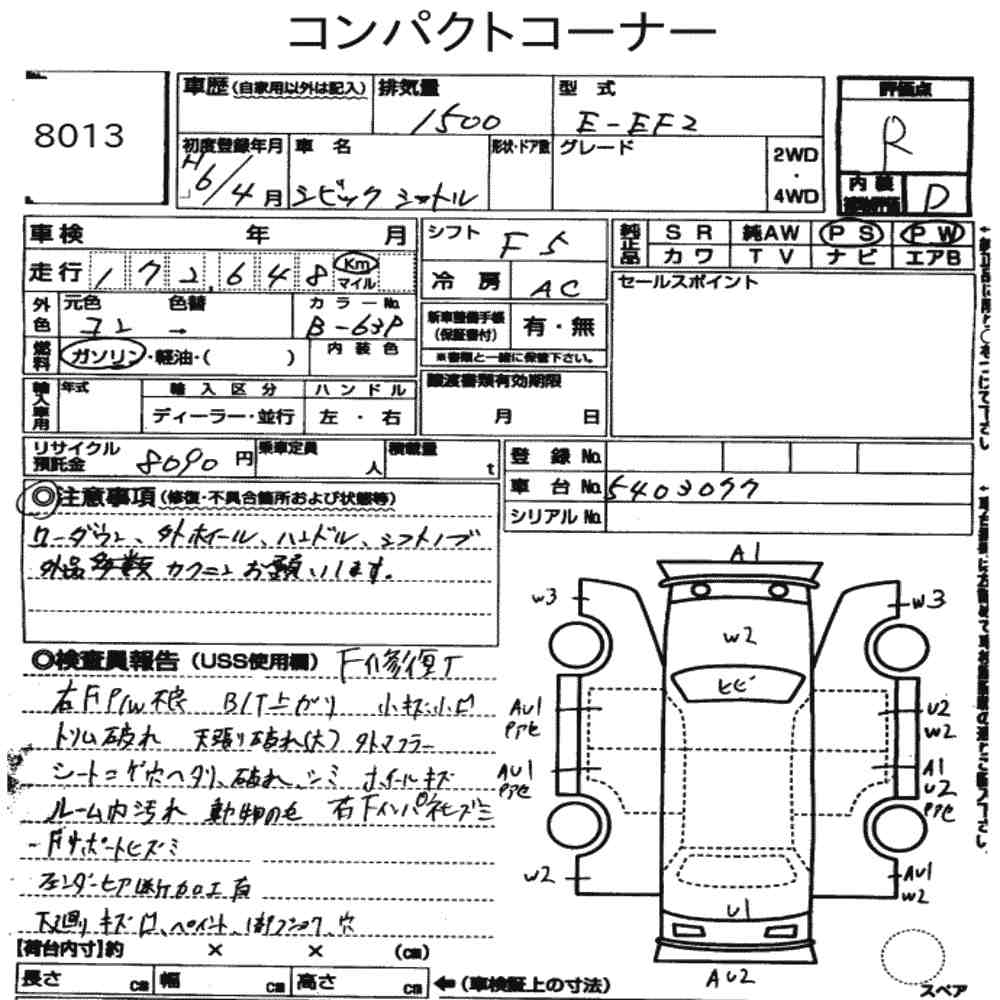 コンパクトコーナー
8013
車歴 (自家用以外は記入) 排気量 1500 型式 E-EF2
初度登録年月 H6/4月 車名 シビック シャトル 形状・ドア数 グレード 2WD・4WD
評価点 R
内装 D
車検 年 月
走行 172,648 Km マイル
外色 元色 コン 色替 → カラーNo. B-63P
燃料 ガソリン・軽油・( ) 内装色
輸入車用 年式 輸入区分 ディーラー・並行 ハンドル 左・右
シフト F5
冷房 AC
新車整備手帳 (保証書付) 有・無
※書類と一緒に保管下さい。
譲渡書類有効期限
月 日
純正品 SR 純AW PS PW
カワ TV ナビ エアB
セールスポイント
リサイクル預託金 8090円 乗車定員 人 積載量 t
登録No.
車台No. 5403077
シリアルNo.
◎注意事項 (修復・不具合箇所および状態等)
ローダウン、外ホイール、ハンドル、シフトノブ
外品多数 カクニン お願いします。
◎検査員報告 (USS使用欄) F修復了
右F P/W不良 B/T上がり 小キズ小凹
トリム破れ 天張り破れ(大) 外マフラー
シートコゲ穴ヘタリ、破れ、シミ ホイールキズ
ルーム内汚れ 動物の毛 右Fインパネヒズミ
-Fサポートヒズミ
フェンダーヒア 加工有
下廻りキズ凹、ペイント、 穴
【荷台内寸】約 × × (cm)
長さ cm 幅 cm 高さ cm ←(車検証上の寸法)
A1
W3
W3
W2
ヒビ
AU1
U2
W2
AU1
A1
U2
W2
AU1
W2
U1
AU2
スペア